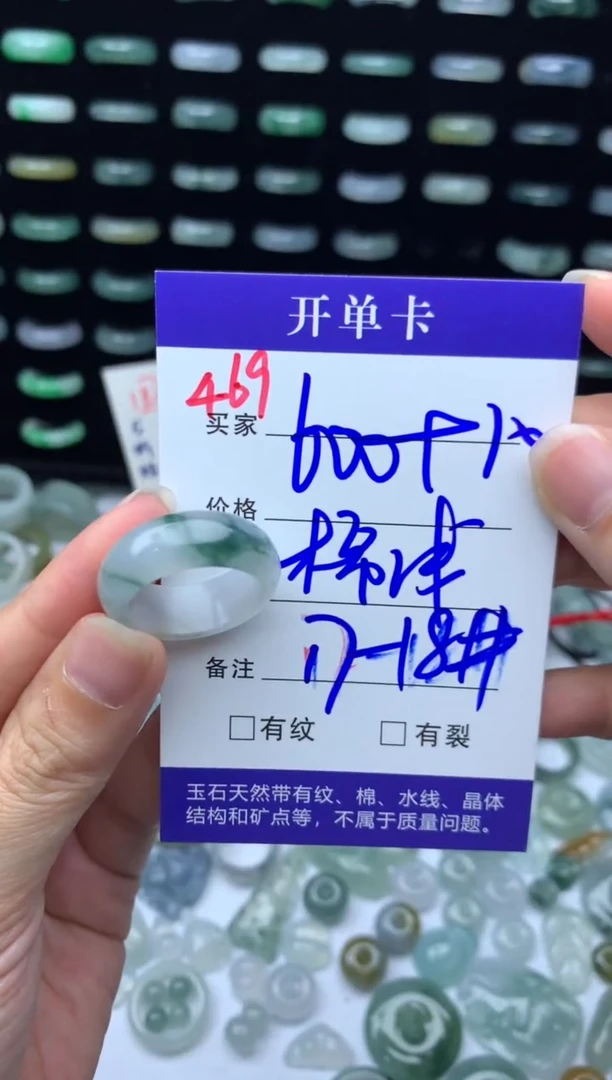 开单卡
469
买家 600+1
价格
标准
17-18#
备注
□有纹 □有裂
玉石天然带有纹、棉、水线、晶体
结构和矿点等，不属于质量问题。